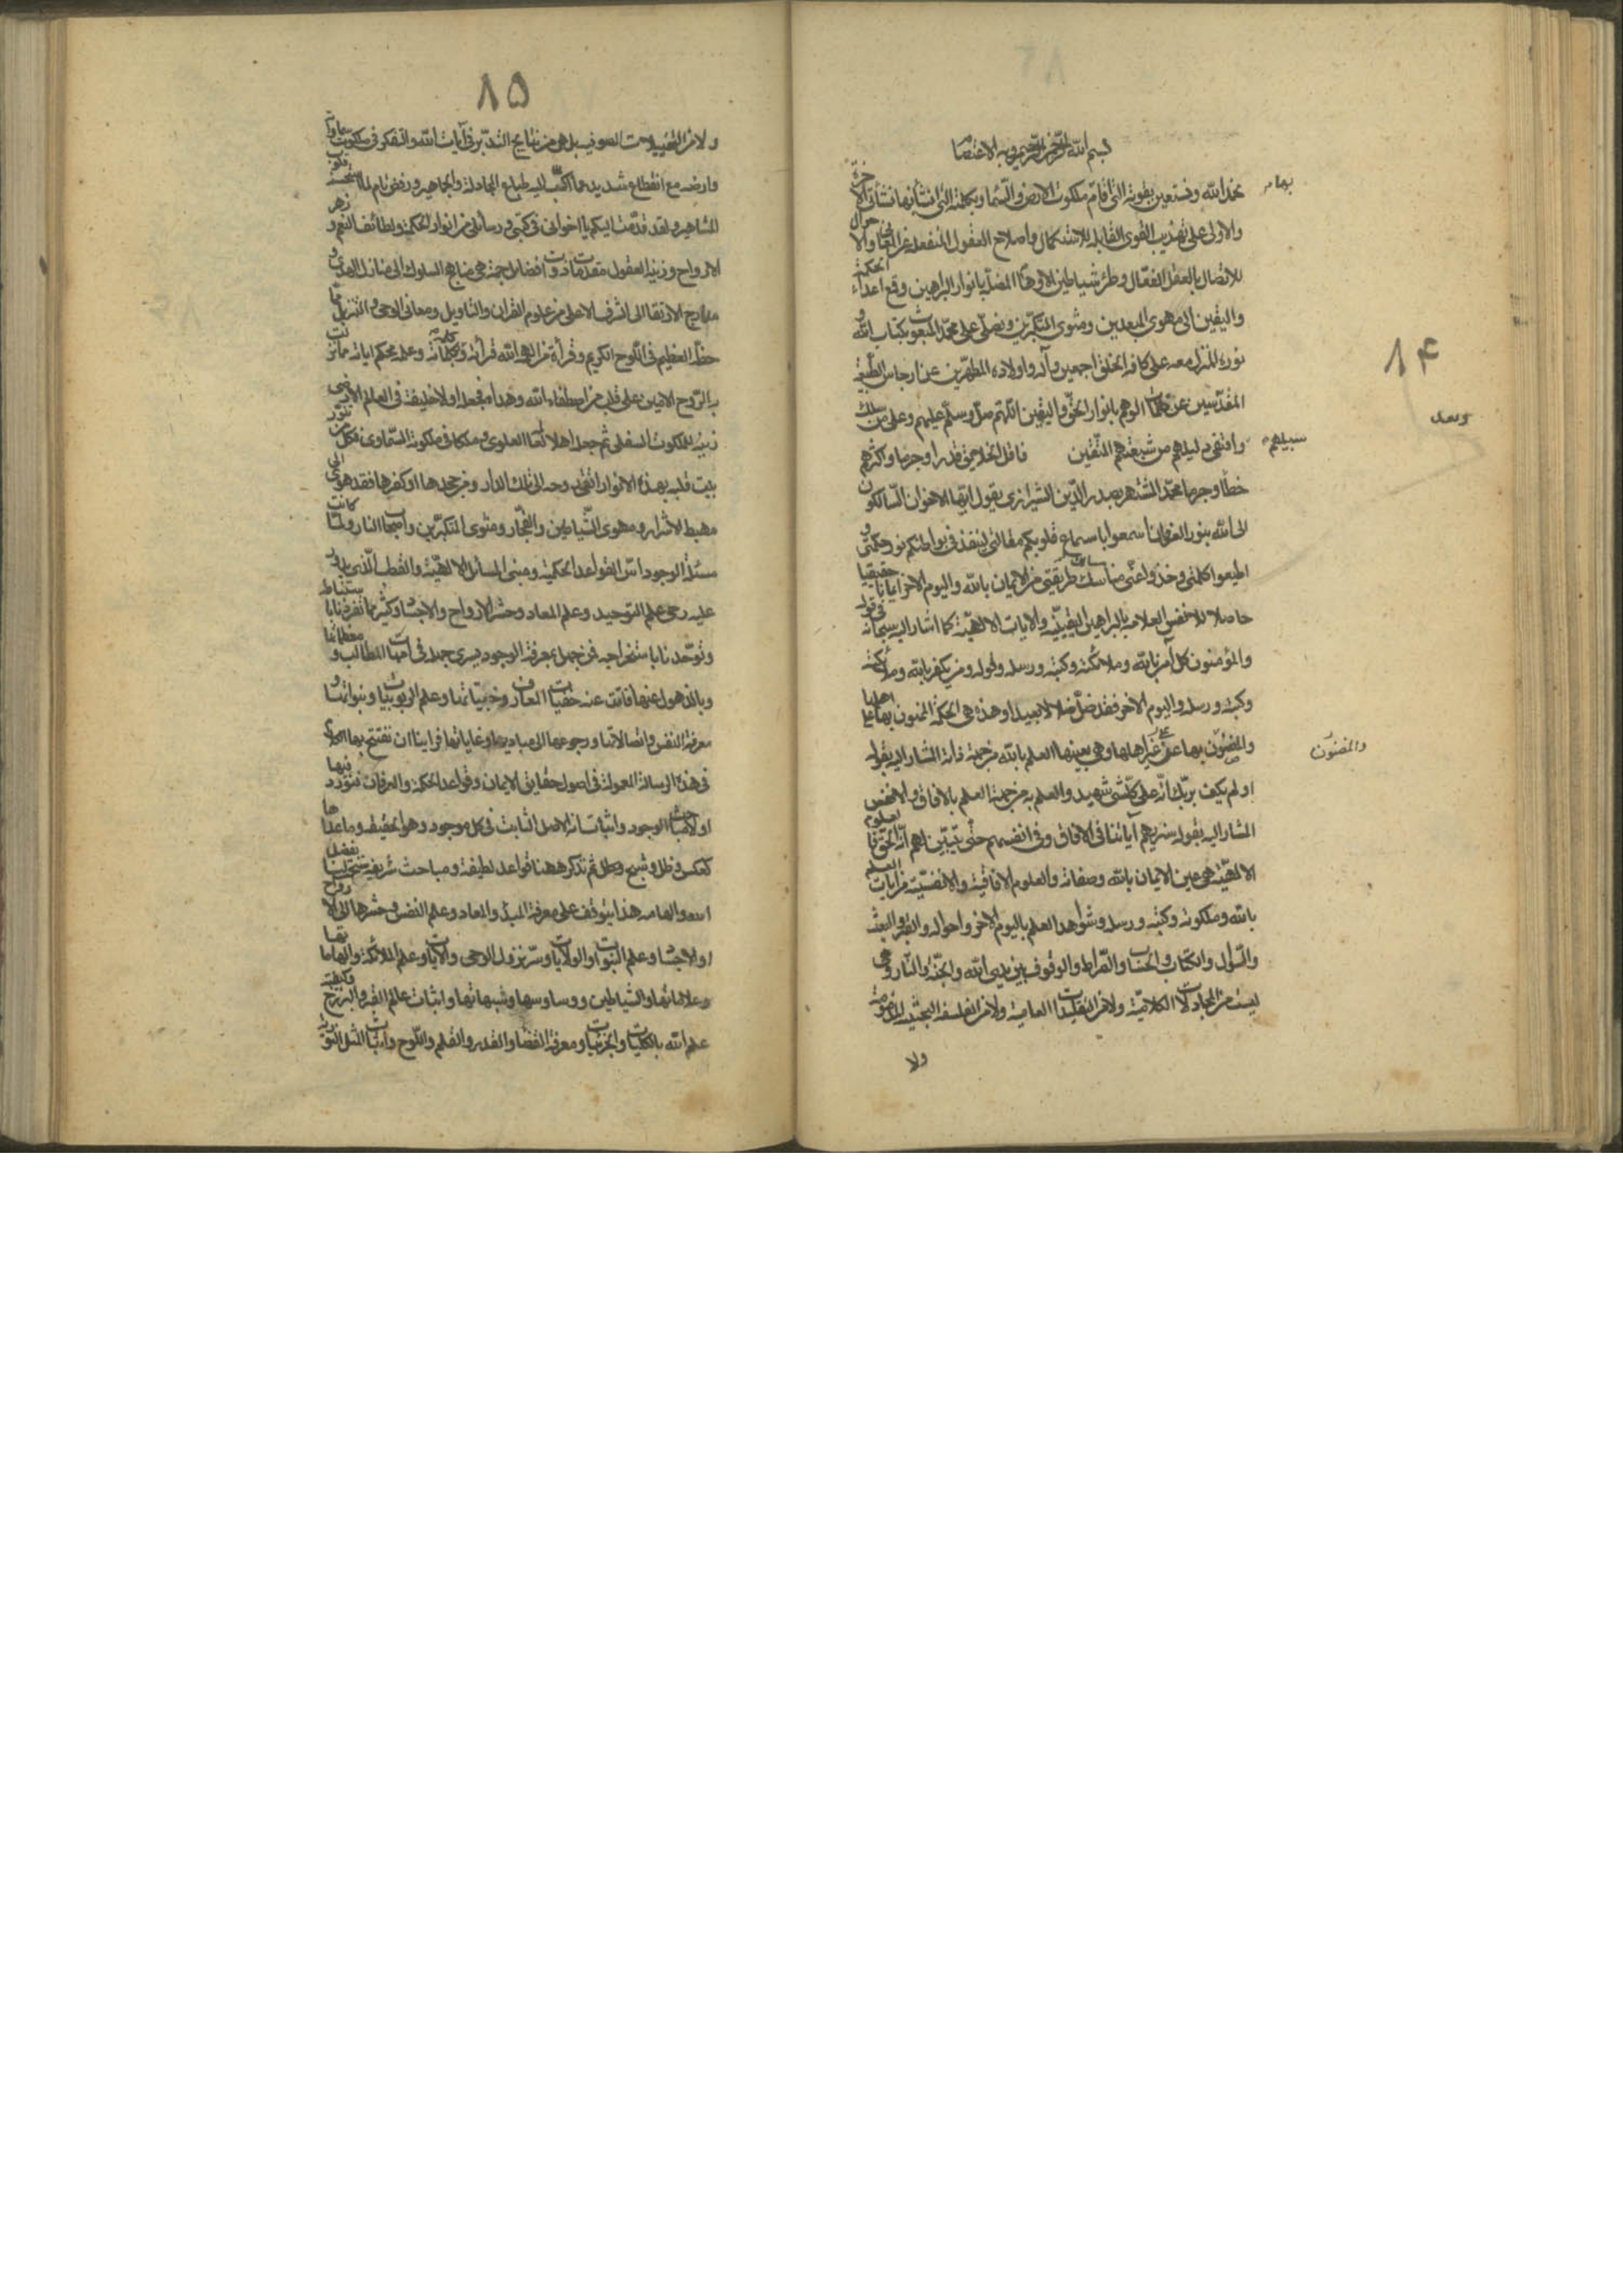 ۸۴
بسم الله الرحمن الرحيم وبه الاعتصام
نحمد الله ونستعين بقوته التى اقام بها ملكوت الارض والسماء وبكلمته التى انشأ بها نشأتى الاخرة
والاولى على تهذيب القوى القابلة للاستكمال واصلاح العقول المنفعلة عن المعانى والاحوال
للاتصال بالعقل الفعال وطرد شياطين الاوهام المضلة بانوار البراهين وقمع اعداء الحكمة
واليقين الى مهوى المبعدين ومثوى المتكبرين ونصلى على محمد المبعوث بكتاب الله و
نوره المنزل معه على كافة الخلق اجمعين وآله واولاده المطهرين عن ارجاس الطبيعة
المقدسين عن ظلمات الوهم بانوار الحق واليقين اللهم صل وسلم عليهم وعلى من سلك
سبيلهم واقتفى دليلهم من شيعتهم المتقين وبعد فاقل الخلايق قدرا وجرما واكثرهم
خطأ وجرما محمد المشتهر بصدر الدين الشيرازى يقول ايها الاخوان السالكون
الى الله بنور العرفان اسمعوا باسماع قلوبكم مقالتى لينفذ فى بواطنكم نور حكمتى و
اطيعوا كلمتى وخذوا عنى مناسك طريقتى من الايمان بالله واليوم الاخر ايمانا حقيقيا
حاصلا للانفس العلامة بالبراهين اليقينية والايات الالهية كما اشار اليه سبحانه فى قوله
والمؤمنون كل آمن بالله وملائكته وكتبه ورسله وقوله ومن يكفر بالله وملائكته
وكتبه ورسله واليوم الاخر فقد ضل ضلالا بعيدا وهذه هى الحكمة الممنون بها على اهلها
والمضنون بها عن غير اهلها وهى بعينها العلم بالله من جهة ذاته المشار اليه بقوله
والمضنون
اولم يكف بربك انه على كل شئ شهيد والعلم به من جهة العلم بالافاق والانفس
المشار اليه بقوله سنريهم آياتنا فى الافاق وفى انفسهم حتى يتبين لهم انه الحق فالعلوم
الالهية هى عين الايمان بالله وصفاته والعلوم الافاقية والانفسية من آيات العلم
بالله وملكوته وكتبه ورسله وشواهد العلم باليوم الاخر واحواله والقبر والبعث
والسؤال والكتاب والحساب والصراط والوقوف بين يدى الله والجنة والنار وهى
ليست من المجادلات الكلامية ولا من التقليدات العامية ولا من الفلسفة البحثية المذمومة
ولا
۸۵
ولا من التخييلات الصوفية بل هى من نتايج التدبر فى آيات الله والتفكر فى ملكوت سماواته
وارضه مع انقطاع شديد عما اكب عليه طباع المجادلة والجماهير ورفض تام لما استحسنه قلوب
المشاهير ولقد قدمت اليكم يا اخوانى فى كتبى ورسائلى من انوار الحكم ولطائف النعم وزهر
الارواح وزينة العقول مقدمات ذوات افضائل جمة هى مناهج السلوك الى منازل الهدى و
معارج الارتقاء الى الشرف الاعلى من علوم القران والتاويل ومعانى الوحى والتنزيل مما
خطه القلم العظيم فى اللوح الكريم وقرأه من الهمه الله قرآنه وكلمه بكلماته وعلمه محكم آياته مما نزلت
به الروح الامين على قلب من اصطفاه الله وهداه فجعله اولا خليفة فى العالم الارضى
زينة للملكوت السفلى ثم جعله اهلا لعالمه العلوى وملكا فى ملكوته السماوى فكل من تنور
بيت قلبه بهذه الانوار ارتقى روحه الى تلك الدار ومن جحدها او كفرها فقد هوى الى
مهبط الاشرار ومهوى الشياطين والفجار ومثوى المتكبرين واصحاب النار ولما كانت
مسئلة الوجود اس القواعد الحكمية ومبنى المسائل الالهية والقطب الذى يدور
عليه رحى علم التوحيد وعلم المعاد وحشر الارواح والاجساد وكثير مما تفردنا باستنباطه
وتوحدنا باستخراجه فمن جهل بمعرفة الوجود يسرى جهله فى امهات المطالب ومعظماتها
وبالذهول عنها فاتت عنه خفيات المعارف وخبيئاتها وعلم الربوبيات ونبواتها و
معرفة النفس واتصالاتها ورجوعها الى مباديها وغاياتها فراينا ان نفتتح بها الكلام
فى هذه الرسالة المعمولة فى اصول حقايق الايمان وقواعد الحكمة والعرفان فنورد فيها
اولا مباحث الوجود واثبات انه الاصل الثابت فى كل موجود وهو الحقيقة وما عداها
كعكس وظل وشبح وظل ثم نذكر ههنا قواعد لطيفة ومباحث شريفة سنحت لنا بفضل
الله والهامه هذا يتوقف على معرفة المبدأ والمعاد وعلم النفس وحشرها الى الارواح
والاجساد وعلم النبوات والولايات وسر نزول الوحى والايات وعلم الملائكة والهاماتها
وعلاماتها والشياطين ووساوسها وشبهاتها واثبات عالم القبر والبرزخ وكيفية
علم الله بالكليات والجزئيات ومعرفة القضاء والقدر والقلم واللوح واثبات المثل النورية